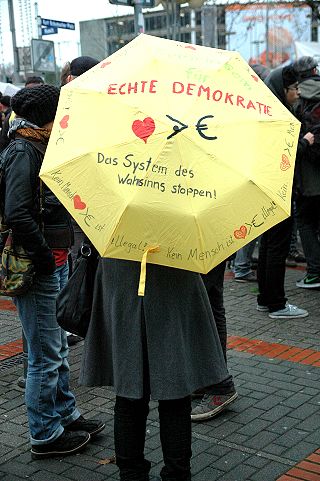 FÜR
ECHTE DEMOKRATIE
♥ > €
Das System des
Wahnsinns stoppen!
Kein Mensch
♥ > €
ist
illegal!
Kein Mensch
♥ > €
illegal
Kein